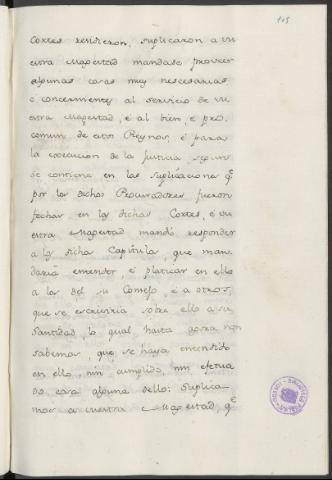 105
Cortes residieron, suplicaron a vu
estra Magestad mandase proveer
algunas cosas muy nescesarias
e concernientes al servicio de vu
estra Magestad, e al bien, e pro
comun de estos Reynos, é para
la execucion de la Justicia segun
se contiene en las suplicaciones q.e
por los dichos Procuradores fueron
fechas en las dichas Cortes, e vu
estra Magestad mandó responder
a los dichos Capitulos, que man
daria entender, é platicar en ello
a los del su Consejo, é a otros,
que se escriviria sobre ello a su
Santidad, lo qual hasta agora non
sabemos, que se haya entendido
en ello, nin cumplido, nin efectua
do cosa alguna dello: Suplica
mos a vuestra Magestad, q.e